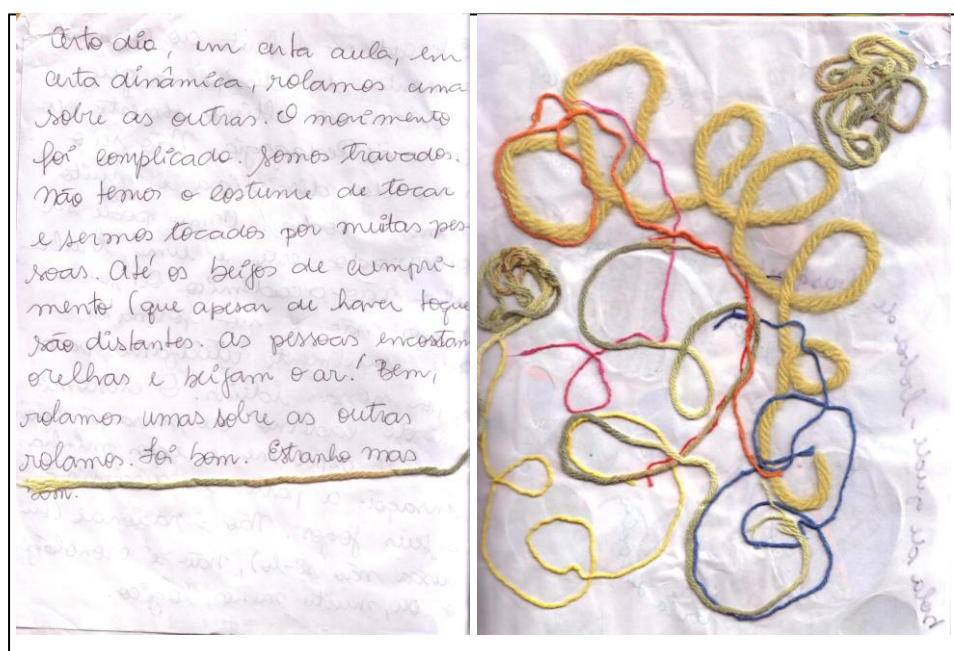 Certo dia, em certa aula, em
certa dinâmica, rolamos uma
sobre as outras. O movimento
foi complicado. Somos travados.
Não temos o costume de tocar
e sermos tocados por muitas pes-
soas. Até os beijos de cumpri-
mento (que apesar de haver toque
são distantes. As pessoas encostam
orelhas e beijam o ar! Bem,
rolamos umas sobre as outras
rolamos. Foi bom. Estranho mas
bom.